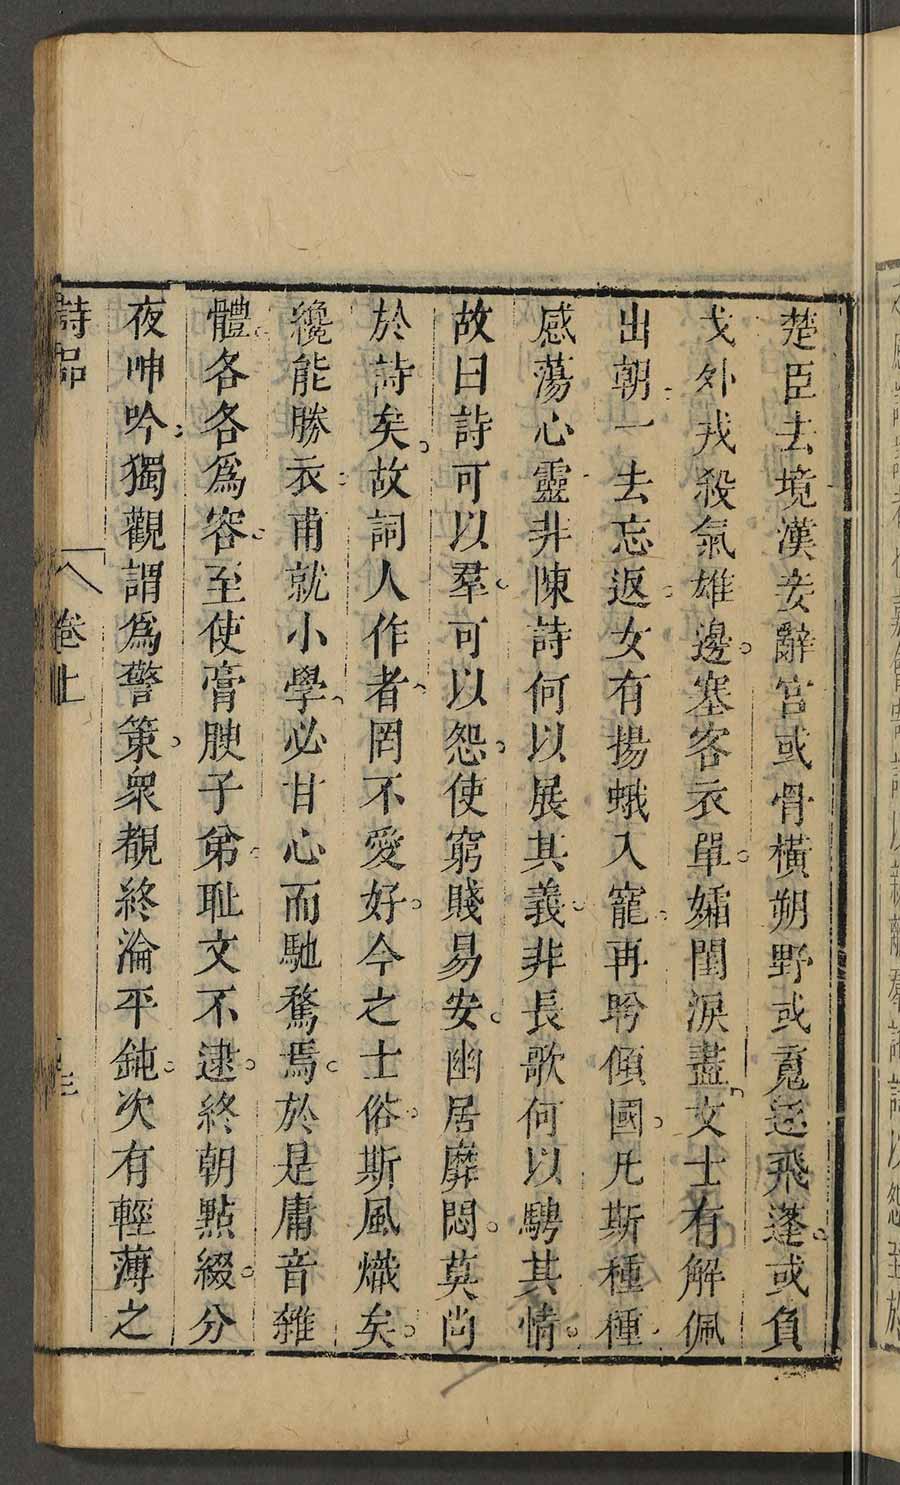 楚臣去境漢妾辭宮或骨橫朔野或䰟逐飛蓬或負
戈外戎殺氣雄邊塞客衣單孀閨淚盡文士有解佩
出朝一去忘返女有揚蛾入寵再盻傾國凡斯種種
感蕩心靈非陳詩何以展其義非長歌何以騁其情
故曰詩可以羣可以怨使窮賤易安幽居靡悶莫尚
於詩矣故詞人作者罔不愛好今之士俗斯風熾矣
纔能勝衣甫就小學必甘心而馳騖焉於是庸音雜
體各各爲容至使膏腴子弟耻文不逮終朝點綴分
夜呻吟獨觀謂爲警策衆覩終淪平鈍次有輕薄之
詩品
卷上